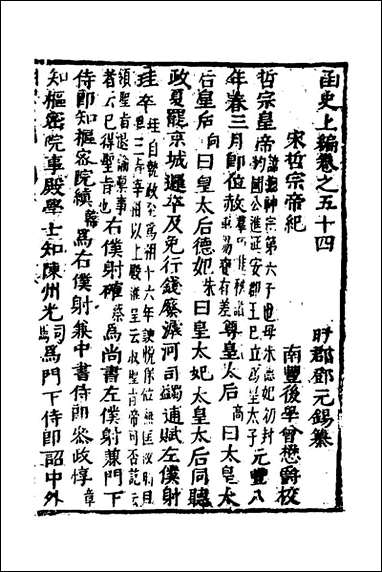 函史上編卷之五十四
旴郡鄧元錫纂
宋哲宗帝紀
南豐後學曾懋爵校
哲宗皇帝諱煦神宗第六子也母朱德妃初封均國公進延安郡王已立爲皇太子元豐八
年春三月即位赦羣臣秩諸軍賜賚有差尊皇太后高曰太皇太
后皇后向曰皇太后德妃朱曰皇太妃太皇太后同聽
政夏罷京城邏卒及免行錢廢濬河司蠲逋賦左僕射
珪卒珪自執政至爲相十六年諛悅保位無匡政時目
右僕射確蔡爲尚書左僕射兼門下
侍郎知樞密院縝韓爲右僕射兼中書侍郎參政惇章
知樞密院事殿學士知陳州光司馬爲門下侍郎詔中外